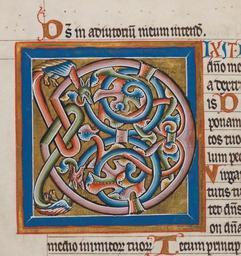 Ds in adiutoriū meum intend.
IXIT
dn̄o meo
a dextr
is D
ponam
tos tuo
lum pe
Virga
tutis tu
ret dn̄s
on dn̄a
medio inimicor tuor Tecum princip